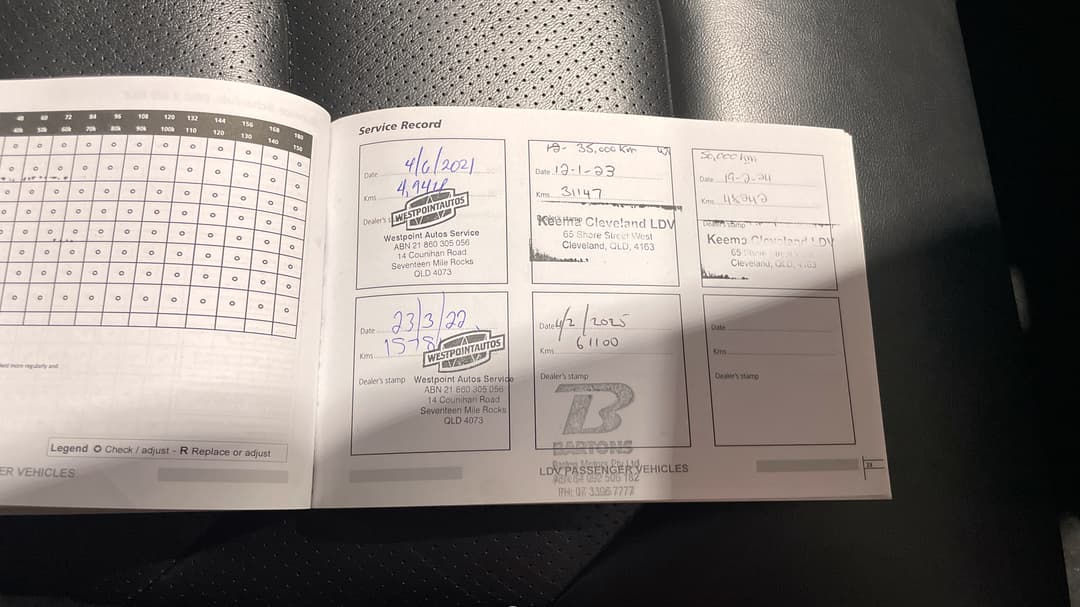 48 60 72 84 96 108 120 132 144 156 168 180
40k 50k 60k 70k 80k 90k 100k 110 120 130 140 150
Legend O Check / adjust - R Replace or adjust
ER VEHICLES
Service Record
Date 4/6/2021
Kms
Dealer's
WESTPOINTAUTOS
Westpoint Autos Service
ABN 21 860 305 056
14 Counihan Road
Seventeen Mile Rocks
QLD 4073
35,000 Km
Date 12-1-23
Kms 31147
Keema Cleveland LDV
65 Shore Street West
Cleveland, QLD, 4163
50,000 km
Date 19-2-24
Kms 48242
Dealer's stamp
Keema Cleveland LDV
Cleveland, QLD, 4163
Date 23/3/22
Kms
WESTPOINTAUTOS
Dealer's stamp
Westpoint Autos Service
ABN 21 860 305 056
14 Counihan Road
Seventeen Mile Rocks
QLD 4073
Date 4/2/2025
Kms 61100
Dealer's stamp
B
BARTONS
Bartons Motors Pty Ltd
LDV PASSENGER VEHICLES
PH: 07 3396 7777
Date
Kms
Dealer's stamp